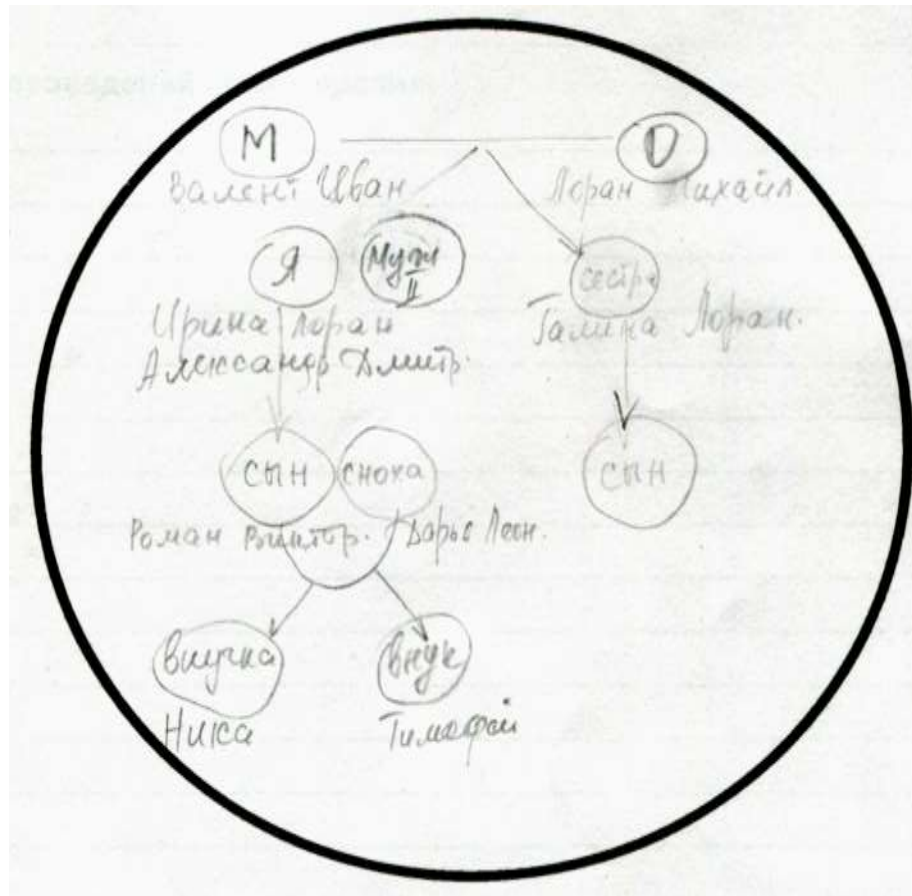 М О
Валент Иван Лоран Михайл
Я Муж II сестра
Ирина Лоран Галина Лоран.
Александр Дмитр.
сын сноха сын
Роман Виктор. Дарья Леон.
внучка внук
Ника Тимофей